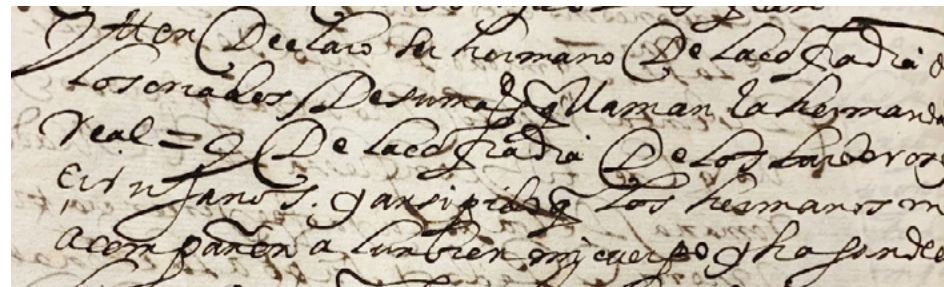 Ytten Declaro ser hermano De la cofradia d
los criados De su magd q llaman la hermanda
real = Y De la cofradia De los barveros
cirujanos. y ansi pido q los hermanos m
acompañen a lunbien mi cuerpo y ha